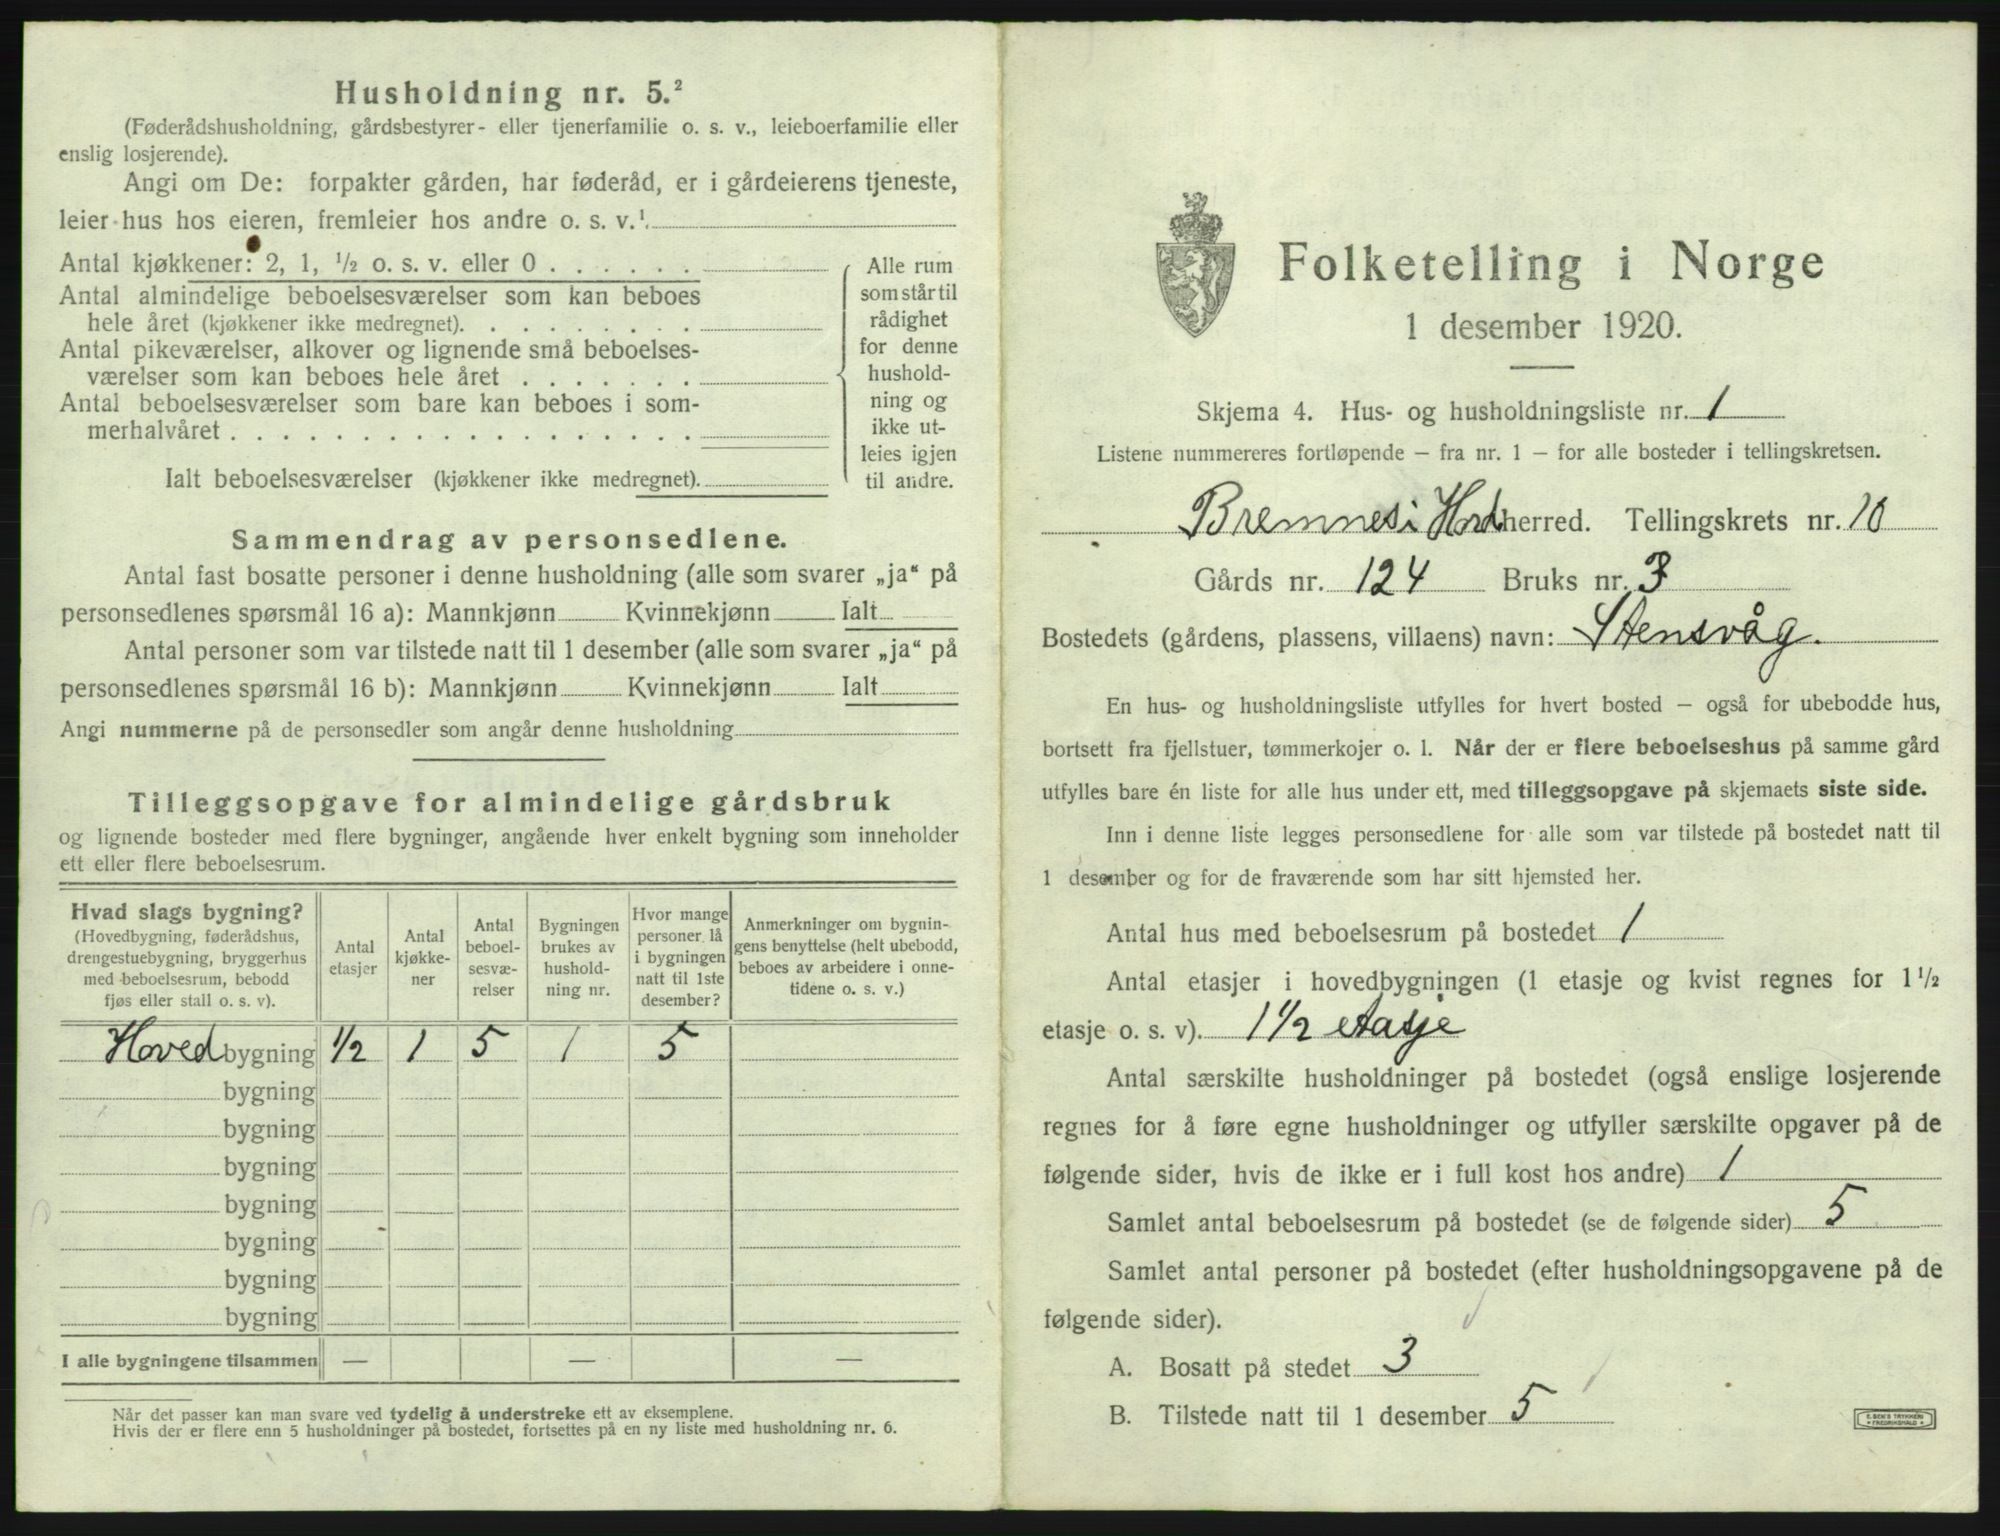 Husholdning nr. 5.²
(Føderådshusholdning, gårdsbestyrer- eller tjenerfamilie o. s. v., leieboerfamilie eller
enslig losjerende).
Angi om De: forpakter gården, har føderåd, er i gårdeierens tjeneste,
leier hus hos eieren, fremleier hos andre o. s. v.¹
Antal kjøkkener: 2, 1, ½ o. s. v. eller 0 . . . . . .
Antal almindelige beboelsesværelser som kan beboes
hele året (kjøkkener ikke medregnet). . . . . . . . .
Antal pikeværelser, alkover og lignende små beboelses-
værelser som kan beboes hele året . . . . . . .
Antal beboelsesværelser som bare kan beboes i som-
merhalvåret . . . . . . . . . . . . . . . . . .
Ialt beboelsesværelser (kjøkkener ikke medregnet).
Alle rum
som står til
rådighet
for denne
hushold-
ning og
ikke ut-
leies igjen
til andre.
Sammendrag av personsedlene.
Antal fast bosatte personer i denne husholdning (alle som svarer „ja“ på
personsedlenes spørsmål 16 a): Mannkjønn Kvinnekjønn Ialt
Antal personer som var tilstede natt til 1 desember (alle som svarer „ja“ på
personsedlenes spørsmål 16 b): Mannkjønn Kvinnekjønn Ialt
Angi nummerne på de personsedler som angår denne husholdning
Tilleggsopgave for almindelige gårdsbruk
og lignende bosteder med flere bygninger, angående hver enkelt bygning som inneholder
ett eller flere beboelsesrum.
Hvad slags bygning?
(Hovedbygning, føderådshus,
drengestuebygning, bryggerhus
med beboelsesrum, bebodd
fjøs eller stall o. s. v).
Antal
etasjer
Antal
kjøkke-
ner
Antal
beboel-
sesvæ-
relser
Bygningen
brukes av
hushold-
ning nr.
Hvor mange
personer lå
i bygningen
natt til 1ste
desember?
Anmerkninger om bygnin-
gens benyttelse (helt ubebodd,
beboes av arbeidere i onne-
tidene o. s. v.)
Hovedbygning 1/2 1 5 1 5
bygning
bygning
bygning
bygning
bygning
bygning
bygning
I alle bygningene tilsammen — — —
Når det passer kan man svare ved tydelig å understreke ett av eksemplene.
Hvis der er flere enn 5 husholdninger på bostedet, fortsettes på en ny liste med husholdning nr. 6.
Folketelling i Norge
1 desember 1920.
Skjema 4. Hus- og husholdningsliste nr. 1
Listene nummereres fortløpende – fra nr. 1 – for alle bosteder i tellingskretsen.
Bremnes i Hord herred. Tellingskrets nr. 10
Gårds nr. 124 Bruks nr. 3
Bostedets (gårdens, plassens, villaens) navn: Stensvåg.
En hus- og husholdningsliste utfylles for hvert bosted – også for ubebodde hus,
bortsett fra fjellstuer, tømmerkojer o. l. Når der er flere beboelseshus på samme gård
utfylles bare én liste for alle hus under ett, med tilleggsopgave på skjemaets siste side.
Inn i denne liste legges personsedlene for alle som var tilstede på bostedet natt til
1 desember og for de fraværende som har sitt hjemsted her.
Antal hus med beboelsesrum på bostedet 1
Antal etasjer i hovedbygningen (1 etasje og kvist regnes for 1 ½
etasje o. s. v). 1 1/2 etasje
Antal særskilte husholdninger på bostedet (også enslige losjerende
regnes for å føre egne husholdninger og utfyller særskilte opgaver på de
følgende sider, hvis de ikke er i full kost hos andre) 1
Samlet antal beboelsesrum på bostedet (se de følgende sider) 5
Samlet antal personer på bostedet (efter husholdningsopgavene på de
følgende sider).
A. Bosatt på stedet 3
B. Tilstede natt til 1 desember 5